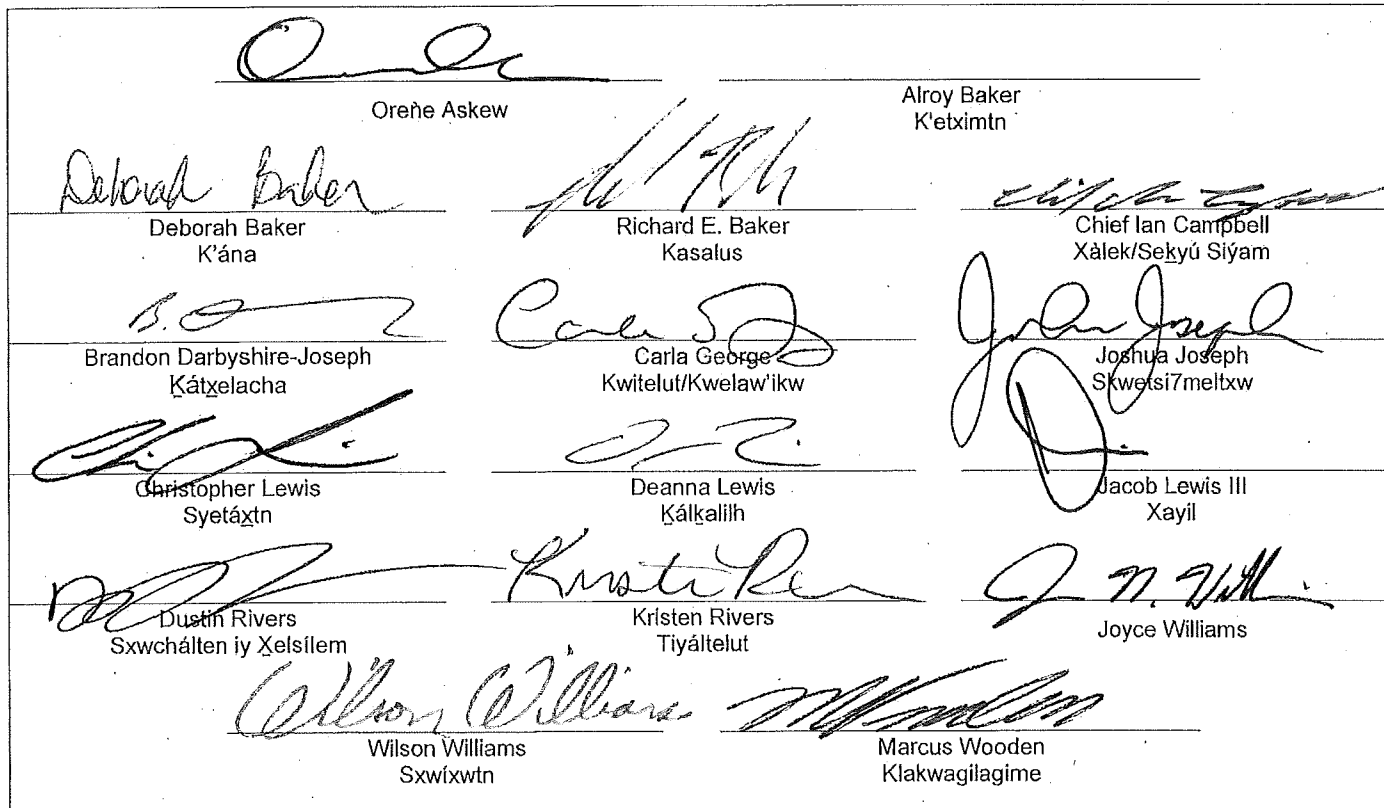 Oreñe Askew
Alroy Baker
K'etximtn
Deborah Baker
Deborah Baker
K'ána
Richard E. Baker
Kasalus
Chief Ian Campbell
Xàlek/Seḵyú Siýam
Brandon Darbyshire-Joseph
Ḵátx̱elacha
Carla
Carla George
Kwitelut/Kwelaw'ikw
Joshua Joseph
Joshua Joseph
Skwetsi7meltxw
Christopher Lewis
Syetáx̱tn
Deanna Lewis
Ḵálḵalilh
Jacob Lewis III
Xayil
Dustin Rivers
Sxwchálten iy X̱elsílem
Kristen Rivers
Tiyáltelut
Joyce Williams
Wilson Williams
Wilson Williams
Sxwíxwtn
Marcus Wooden
Klakwagilagime